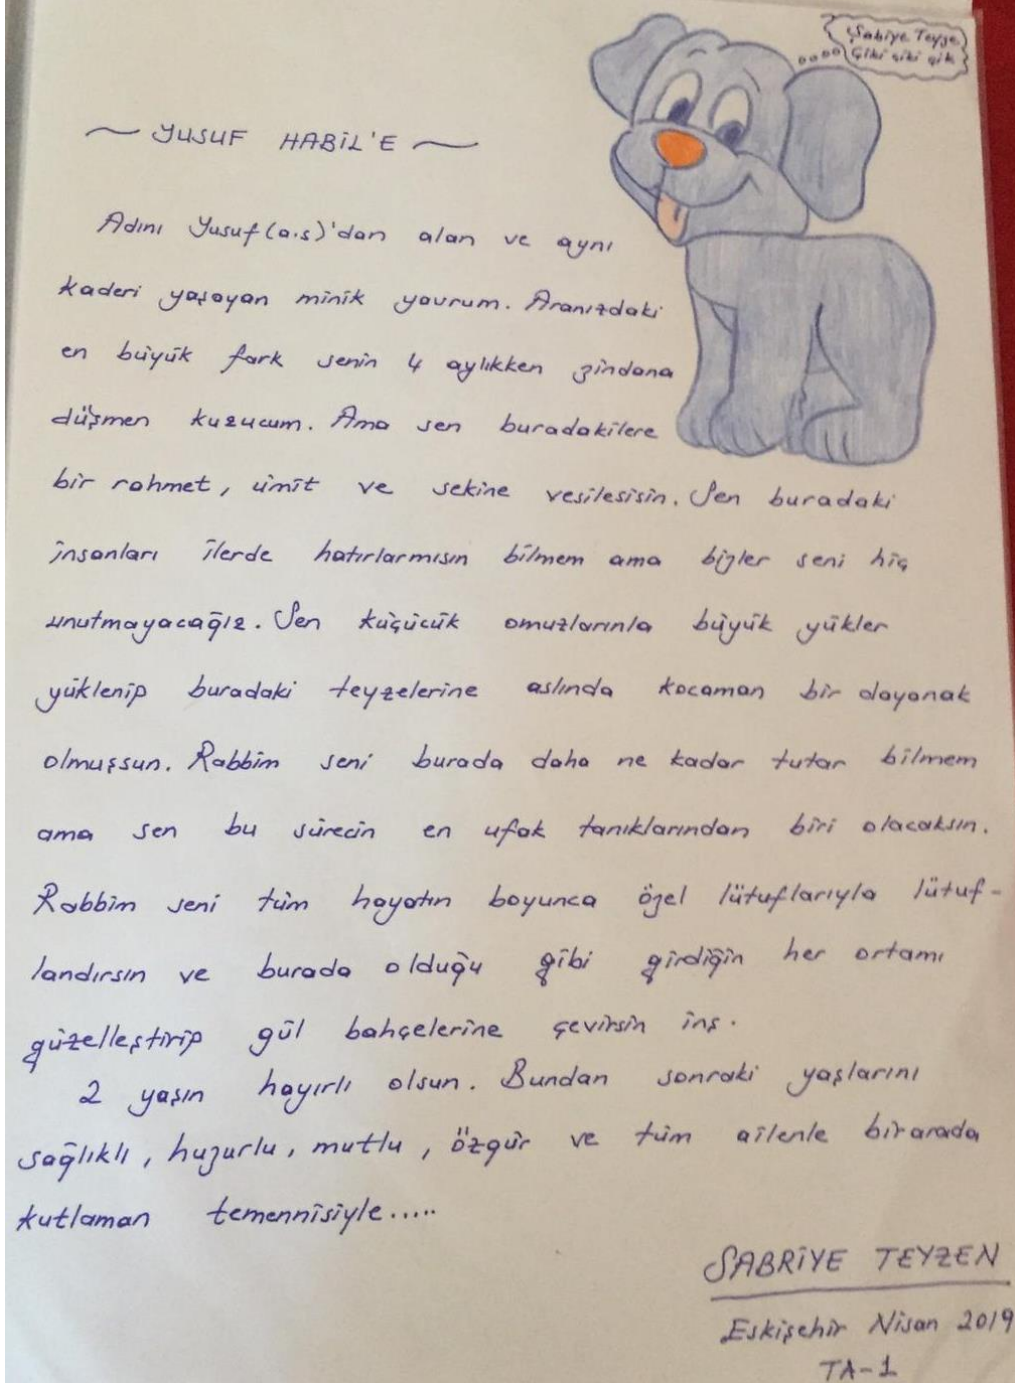 Şabiye Teyze
Çiki çiki çik
~ YUSUF HABİL'E ~
Adını Yusuf(a.s)'dan alan ve aynı
kaderi yaşayan minik yavrum. Aranızdaki
en büyük fark senin 4 aylıkken zindana
düşmen kuzucum. Ama sen buradakilere
bir rahmet, ümit ve sekine vesilesisin. Sen buradaki
insanları ilerde hatırlarmısın bilmem ama bizler seni hiç
unutmayacağız. Sen küçücük omuzlarınla büyük yükler
yüklenip buradaki teyzelerine aslında kocaman bir dayanak
olmuşsun. Rabbim seni burada daha ne kadar tutar bilmem
ama sen bu sürecin en ufak tanıklarından biri olacaksın.
Rabbim seni tüm hayatın boyunca özel lütuflarıyla lütuf-
landırsın ve burada olduğu gibi girdiğin her ortamı
güzelleştirip gül bahçelerine çevirsin inş.
2 yaşın hayırlı olsun. Bundan sonraki yaşlarını
sağlıklı, huzurlu, mutlu, özgür ve tüm ailenle birarada
kutlaman temennisiyle.....
SABRİYE TEYZEN
Eskişehir Nisan 2019
TA-1